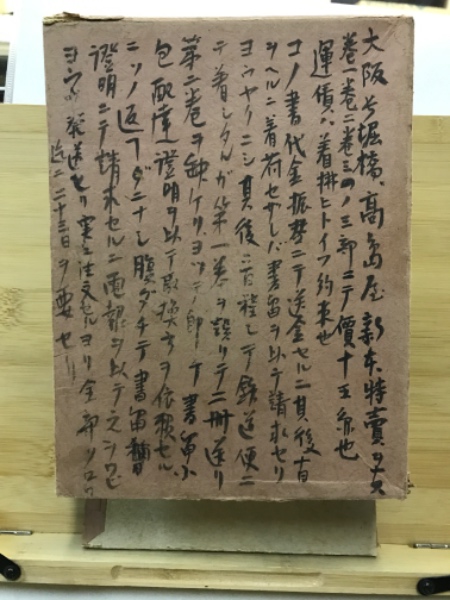 大阪長堀橋、髙島屋新本特賣ヲ買
巻一巻二巻三ノ三部ニテ價十五弗也
運賃ハ着拂ヒトイフ約束也
コノ書代金振替ニテ送金セルニ其後十日
ヲヘルニ着荷セザレバ書留ヲ以テ請求セリ
ヨウヤクニシ其後二日程シテ鉄道便ニ
テ着シタルガ第一巻ヲ誤リテ二冊送リ
第二巻ヲ缺ケリ、ヨッテ即チ書留小
包配達證明ヲ以テ取換方ヲ依頼セル
ニソノ返フダニナシ腹ダチテ書留
證明ニテ請求セルニ電報ヲ以テ
発送セリ実ニ注文セルヨリ全部ソロフ
迄ニ二十三日ヲ要セリ